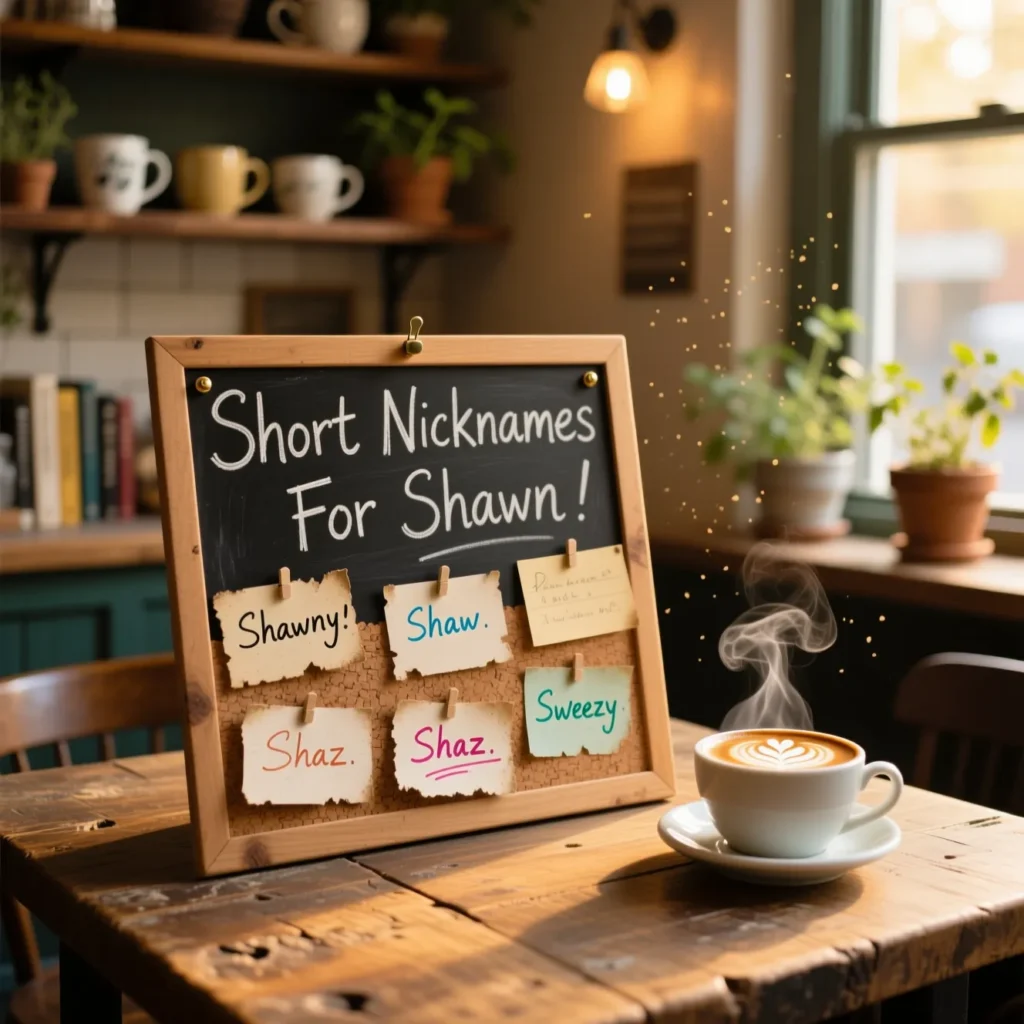 Short Nicknames
For Shawn!
Shawny!
Shaw.
Shaz.
Shaz.
Sweezy.